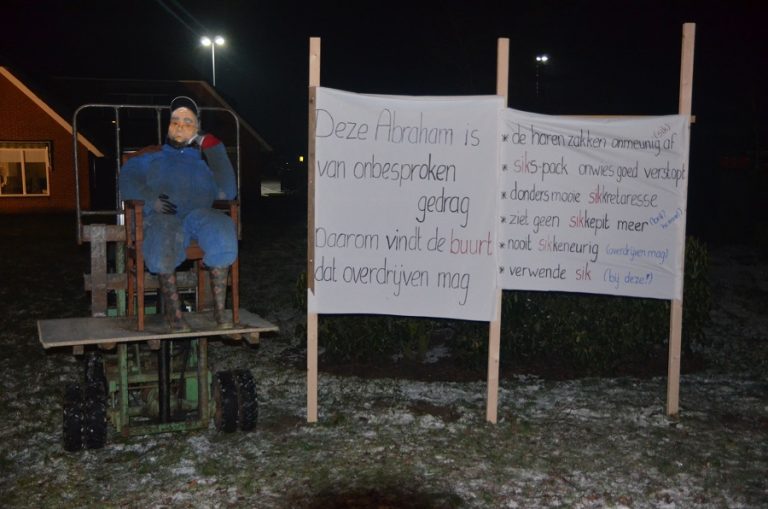 Deze Abraham is
van onbesproken
gedrag
Daarom vindt de buurt
dat overdrijven mag
(sik)
* de haren zakken onmeunig af
* siks-pack onwies goed verstopt
* donders mooie sikkretaresse
* ziet geen sikkepit meer
* nooit sikkeneurig (overdrijven mag)
* verwende sik (bij deze!!)